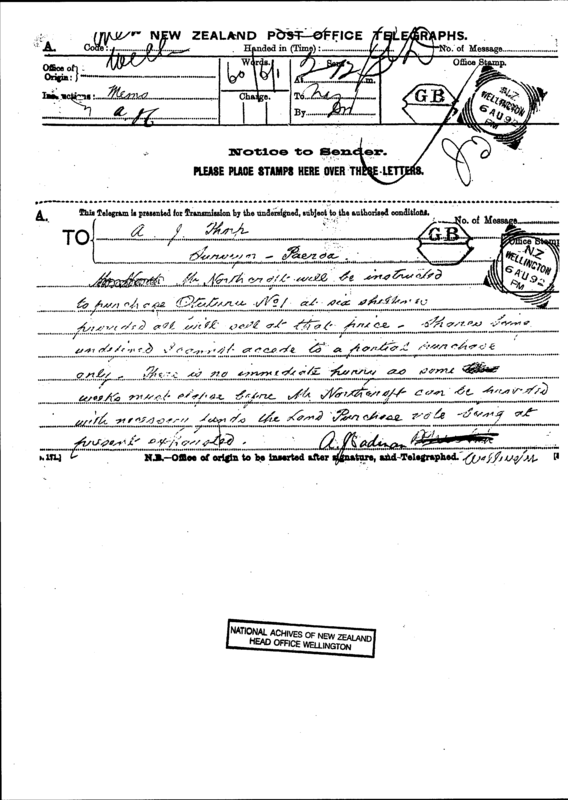 NEW ZEALAND POST OFFICE TELEGRAPHS.
A. Code: Handed in (Time): No. of Message
Office of Origin: Words. Sent Office Stamp.
60 6/1 At m.
Instructions: Memo Charge. To
By
GB
N.Z
WELLINGTON
6 AU 92
PM
Notice to Sender.
PLEASE PLACE STAMPS HERE OVER THESE LETTERS.
A. This Telegram is presented for Transmission by the undersigned, subject to the authorised conditions.
No. of Message
TO A J Thorp
Paeroa
GB
Office Stamp
N.Z
WELLINGTON
6 AU 92
PM
Mr Northcroft will be instructed
to purchase No 1 at six shillings
provided all will sell at that price - Shares being
undefined I cannot accede to a partial purchase
only. There is no immediate hurry as some
weeks must elapse before Mr Northcroft can be
with necessary funds the Land Purchase vote being at
present expended. A J Cadman
N.B.—Office of origin to be inserted after signature, and Telegraphed. Wellington
NATIONAL ACHIVES OF NEW ZEALAND
HEAD OFFICE WELLINGTON